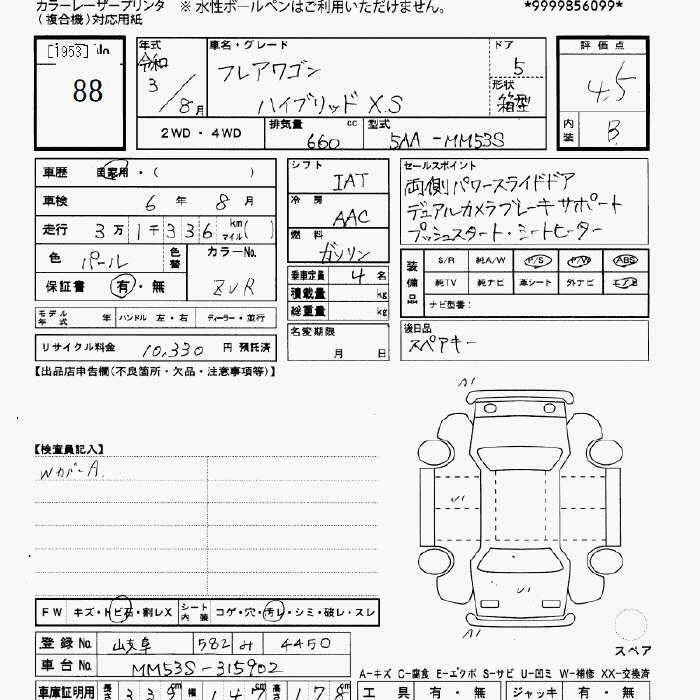 カラーレーザープリンタ ※ 水性ボールペンはご利用いただけません。 *9999856099*
(複合機)対応用紙
[1953]
88
年式 令和 3 / 8 月
車名・グレード
フレアワゴン
ハイブリッド XS
ドア 5
形状 箱型
評価点
4.5
内装 B
2WD ・ 4WD
排気量 660 cc
型式 5AA-MM53S
車歴 自家用・( )
車検 6 年 8 月
走行 3万1千336 km マイル( )
色 パール 色替 カラーNo. ZVR
保証書 有・無
モデル年式 年 ハンドル 左・右 ディーラー・並行
リサイクル料金 10,330 円 預託済
シフト IAT
冷房 AAC
燃料 ガソリン
乗車定員 4 名
積載量 kg
総重量 kg
名変期限
月 日
セールスポイント
両側パワースライドドア
デュアルカメラブレーキサポート
プッシュスタート・シートヒーター
装備品 S/R 純A/W P/S P/W ABS
純TV 純ナビ 革シート 外ナビ エアB
ナビ型番:
後日品
スペアキー
【出品店申告欄(不良箇所・欠品・注意事項等)】
【検査員記入】
WカバーA.
A1
U1
U1
A1
スペア
FW キズ・トビ石・割レX シート内装 コゲ・穴・汚レ・シミ・破レ・スレ
登録No. 岐阜 582 み 4450
車台No. MM53S-315902
A-キズ C-腐食 E-エクボ S-サビ U-凹ミ W-補修 XX-交換済
車庫証明用 長さ 339 cm 幅 147 cm 高さ 17
工具 有・無 ジャッキ 有・無